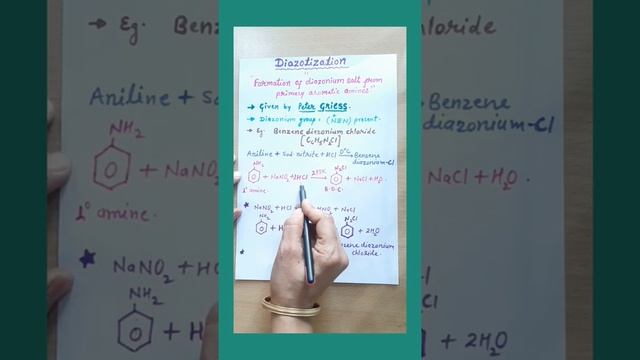 → Eg. Benz
chloride
Aniline + So
→ Benzene
diazonium-Cl
NH2
+ NaNO
1° amine.
NaCl + H2O.
★ NaNO2 + HC
NH2
+ H
Cl
+ 2H2O
Diazotization
"Formation of diazonium salt from
primary aromatic amines"
→ Given by Peter GRIESS.
→ Diazonium group = (N≡N) present.
→ Eg. Benzene diazonium chloride
[C6H5N2Cl]
Aniline + Sod. nitrite + HCl 0°C → Benzene
diazonium-Cl
NH2 N2Cl
+ NaNO2 + HCl 273K → + NaCl + H2O.
1° amine. B.D.C.
★ NaNO2 + HCl HNO2 + NaCl
NH2 N2Cl
+ H + 2H2O
diazonium
chloride.